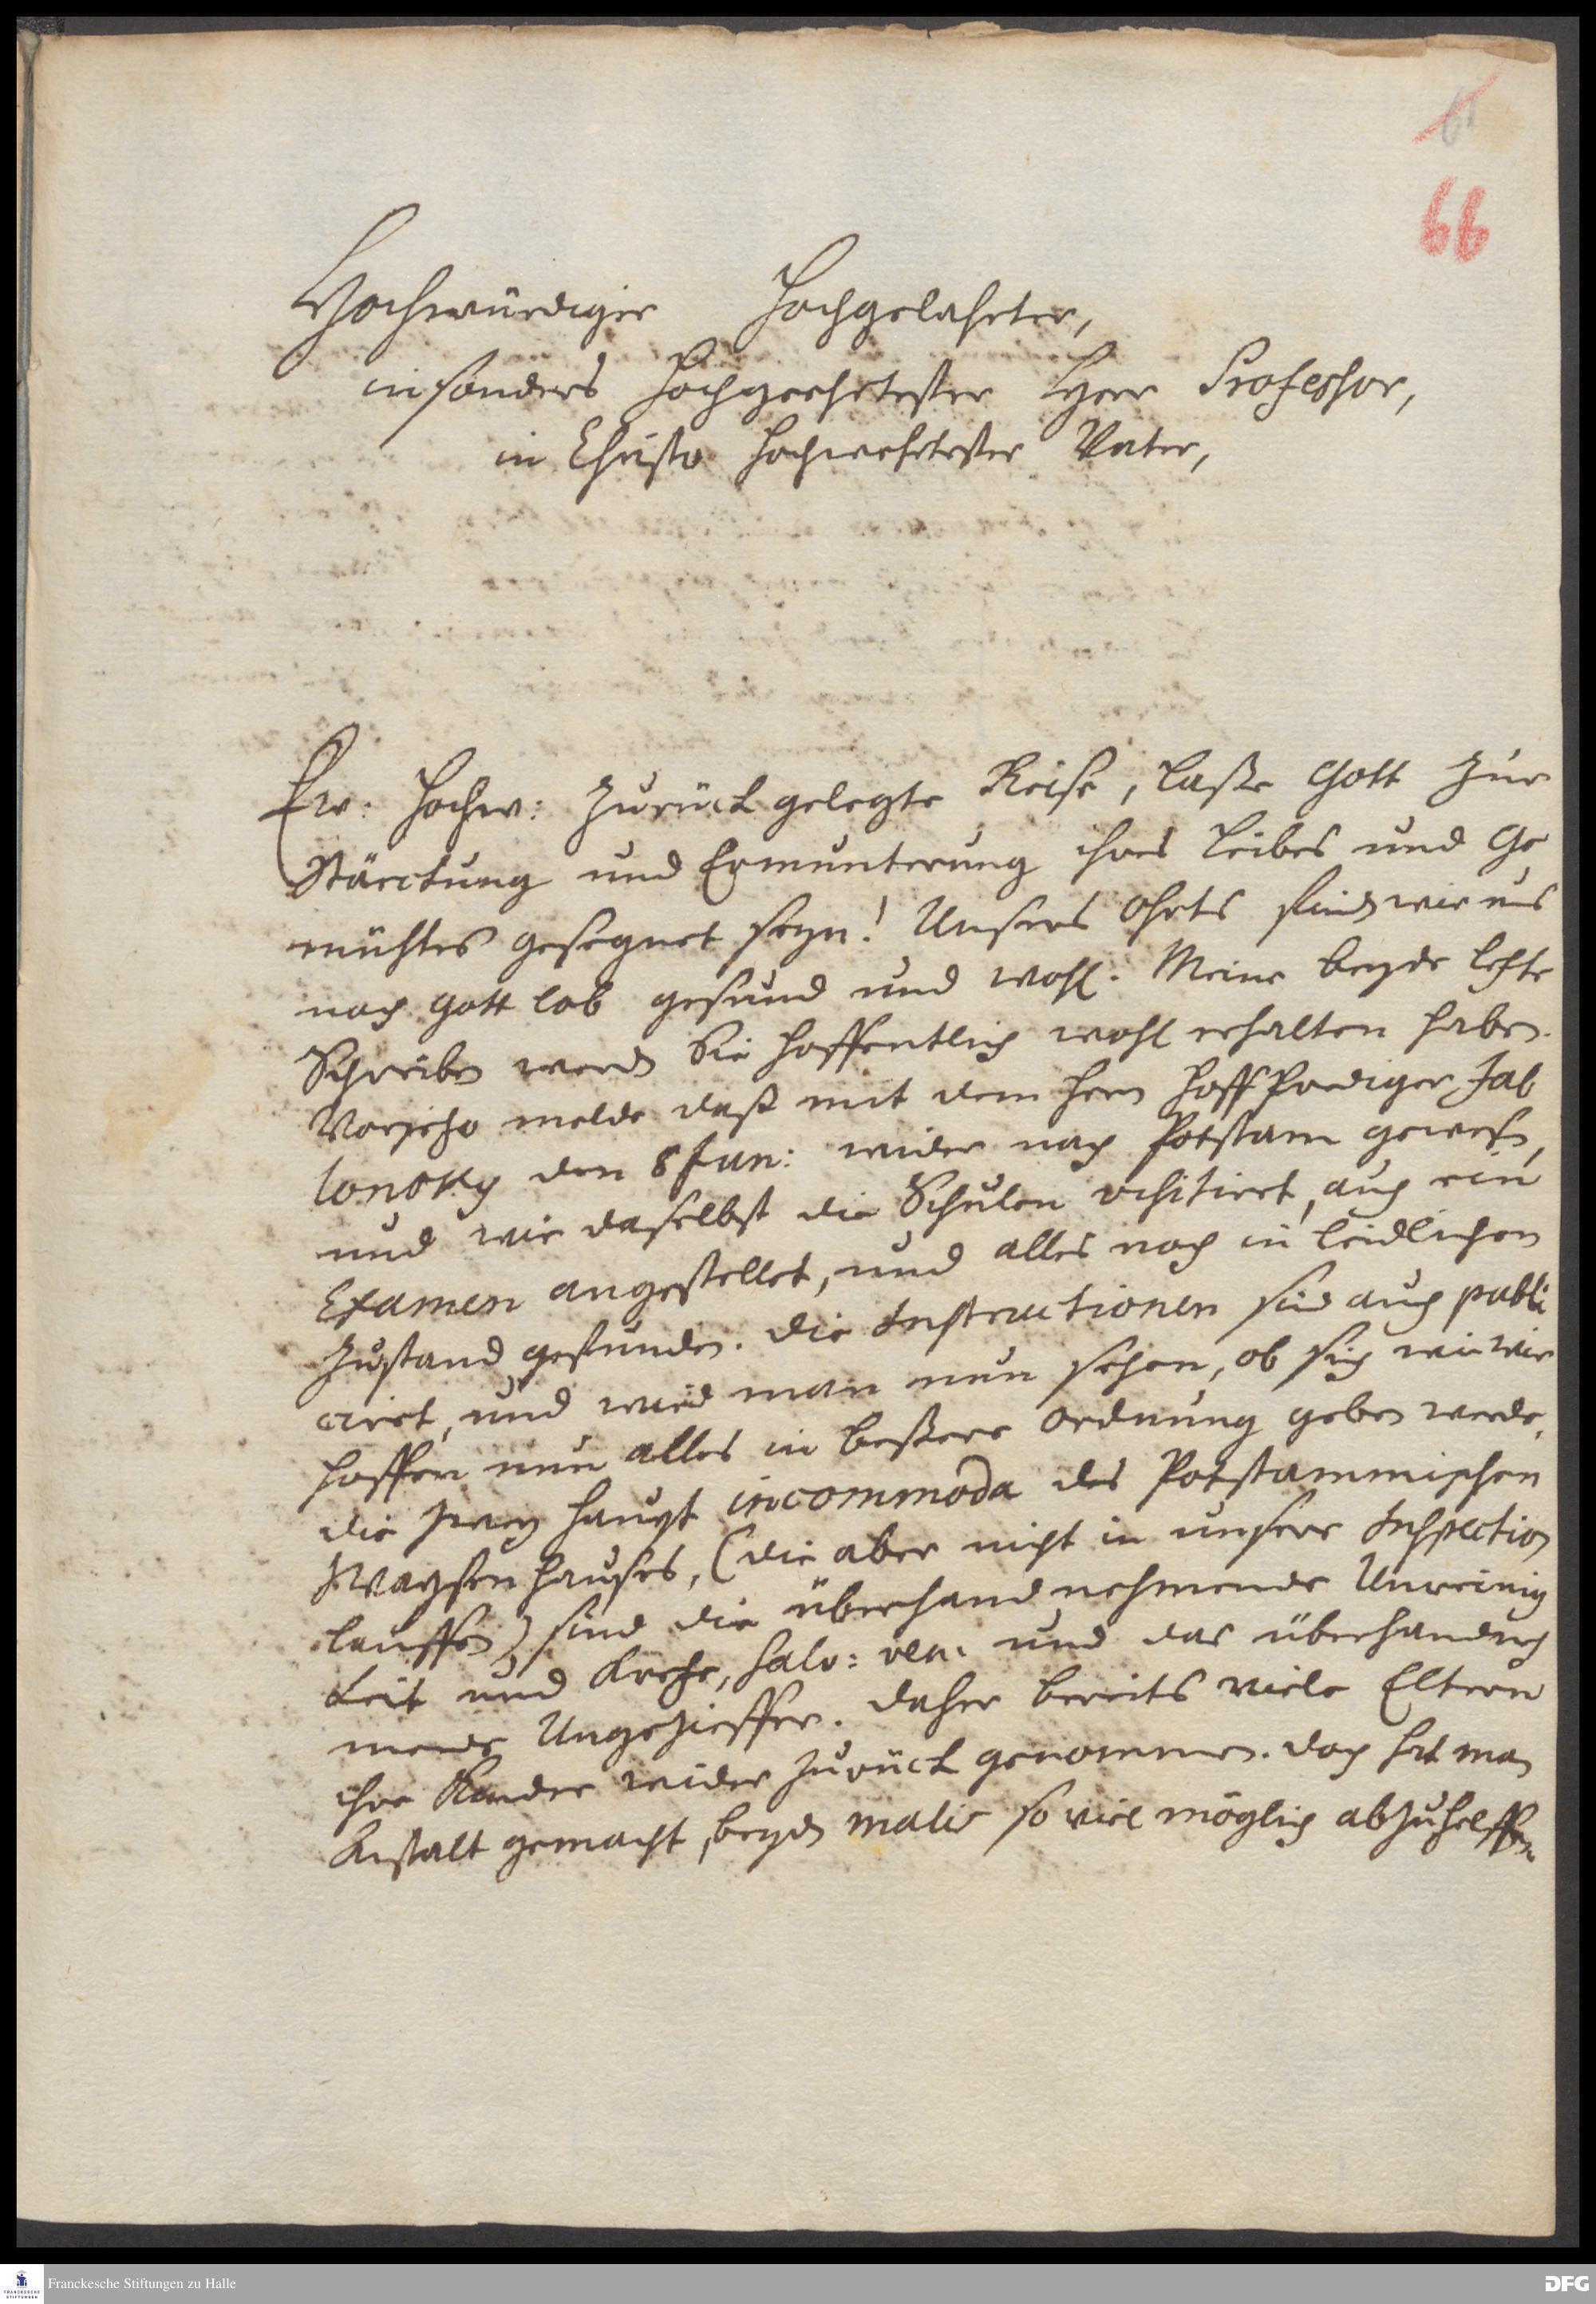 61
66
Hochwürdiger Hochgelahrter,
insonders Hochgeehrtester Herr Professor,
in Christo Hochwehrtester Vater,
Ew. Hochw: zurückgelegte Reise, laße Gott zur
Stärckung und Ermunterung ihres Leibes und Ge
mühtes gesegnet seyn! Unsers Ohrts sind wir uns
noch gott lob gesund und wohl. Meine beyde letzte
Schreiben werden Sie hoffentlich wohl erhalten haben.
Vorjetzo melde daß mit dem Herrn Hoffprediger Jab
lonsky den 8 Jan: wider nach Potstam gewesen,
und wir daselbst die Schulen visitiret, auch ein
Examen angestellet, und alles noch in leidlichen
Zustand gefunden. Die Instructionen sind auch publi
ciret, und wird man nun sehen, ob sich wie wir
hoffen nun alles in beßere Ordnung geben werde.
die zwey haupt incommoda des Potstammischen
Waysenhauses, (die aber nicht in unsere Inspection
lauffen) sind die überhandnehmende Unreinig
keit und Kretze, salv: ven: und das überhandneh
mende Ungezieffer. Daher bereits viele Eltern
ihre Kinder wider zurück genommen. doch hat man
Anstalt gemacht, beyden malis so viel möglich abzuhelffen.
Franckesche Stiftungen zu Halle
DFG